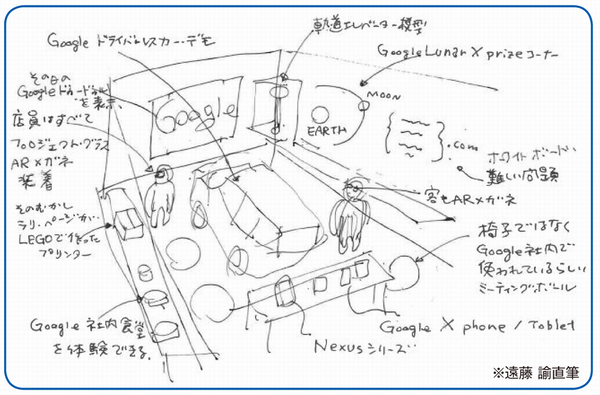 Google ドライバーレスカー・デモ
軌道エレベーター模型
Google Lunar X prize コーナー
その日の
Googleドゥードゥルを表示
店員はすべて
プロジェクト・グラス
ARメガネ
装着
そのむかし
ラリー・ページが
LEGOで作った
プリンター
Google 社内食堂
を体験できる
Google
MOON
EARTH
.com
ホワイトボードに
難しい問題
客もARメガネ
椅子ではなく
Google社内で
使われているらしい
ミーティングボール
Google X phone / Tablet
Nexusシリーズ
※遠藤 諭直筆